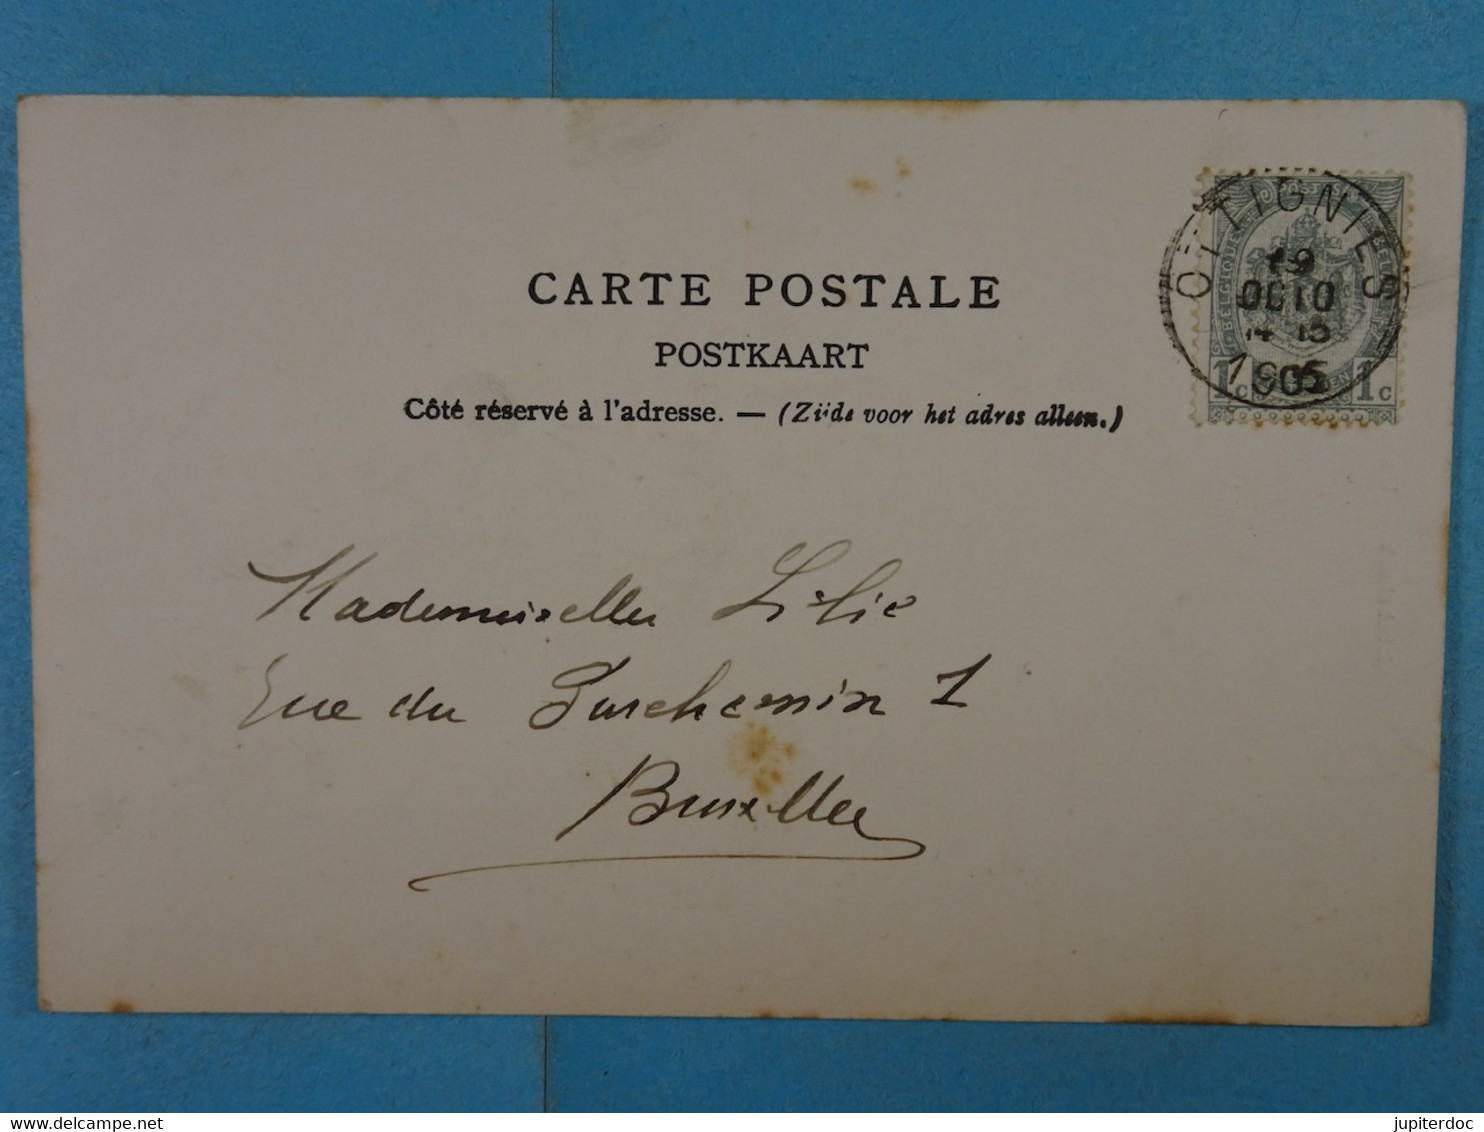 CARTE POSTALE
POSTKAART
Côté réservé à l'adresse. — (Zijde voor het adres alleen.)
OTTIGNIES
19
14-15
1905
BELGIQUE
1c 1c
Mademoiselle
Rue du Parchemin 1
Bruxelles
jupiterdoc